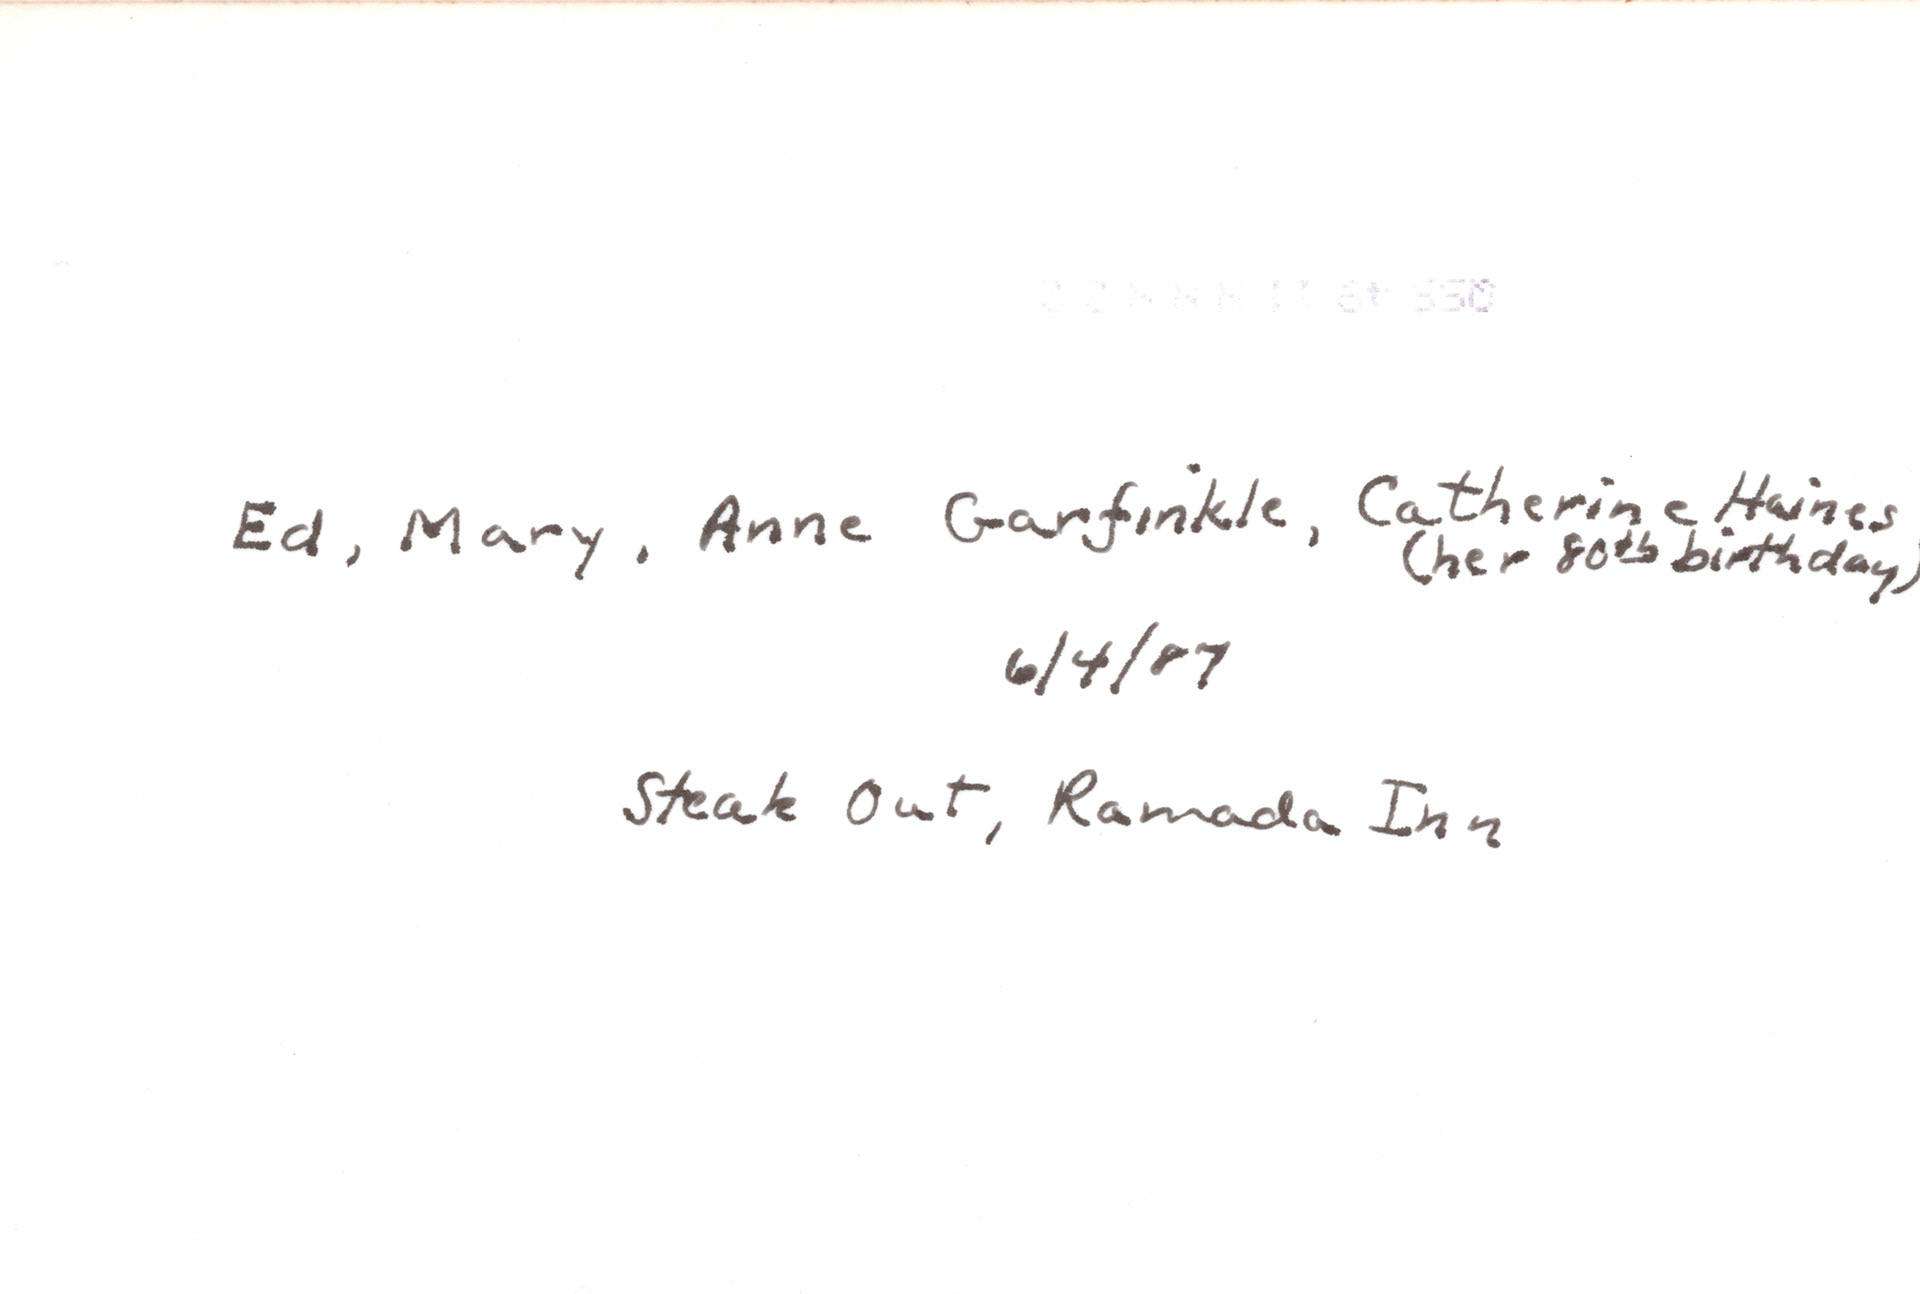 Ed, Mary, Anne Garfinkle, Catherine Haines
(her 80th birthday)
6/4/87
Steak Out, Ramada Inn